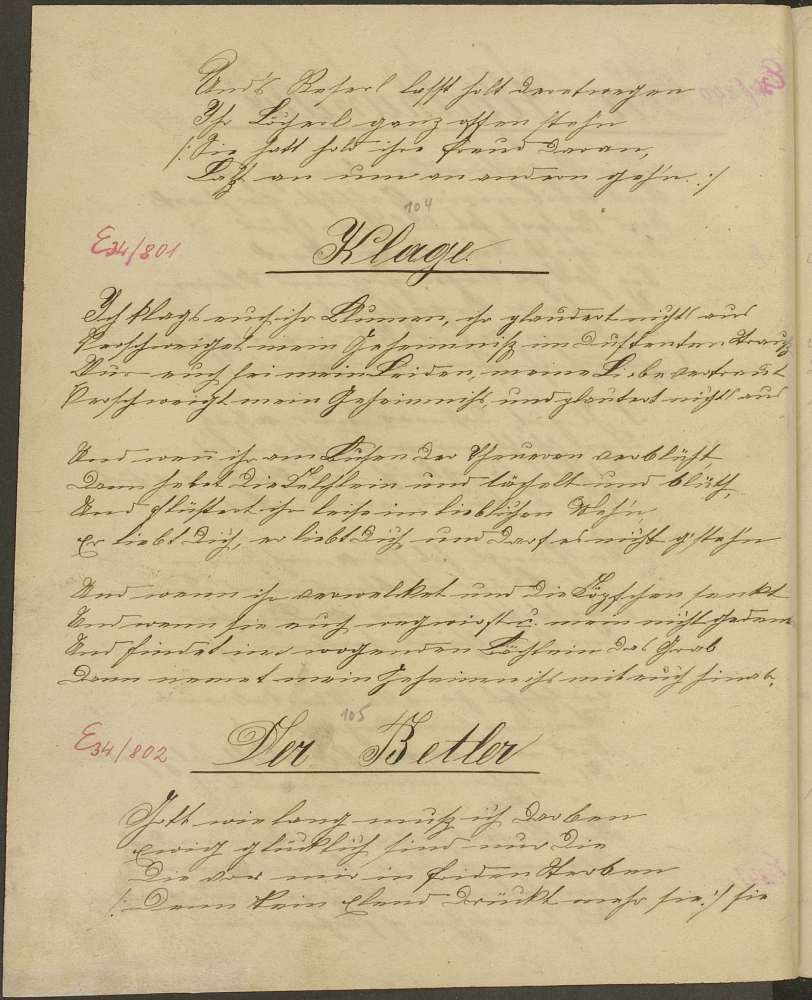 Und's Reserl lasst halt deretwegen
Ihr Löcherl ganz offen stehn
/: Sie hatt hald ihre Freud daran,
Laßt an um an andern gehn. :/
104
E34/801 Klage.
Ich klags euch ihr Blumen, ihr plaudert nichts aus
Verschweiget mein Geheimniß im duftenden Strauß
Nur euch sei mein Leiden, meine Liebe vertraut
Verschweigt mein Geheimniß, und plautert nichts aus
Und wenn ihr am Busen der Theueren verblüht
Dann hebet die Kelchlein und und blüht,
Und flüstert ihr leise im lieblichen Weh'n
Er liebt Dich, er liebt Dich und darf es nicht g'steh'n
Und wenn ihr verwelket und die Köpfchen senkt
Und wenn sie euch wegwirft u. mein nicht gedenkt
Und findet im wogenden Bächlein das Grab
Dann nemet mein Geheimniß mit euch hinab.
105
E34/802 Der Betler
Gott wie lang muß ich darben
Ewig glücklich sind nur die
Die vor mir in Friden starben
/: Denn kein Elend drückt mehr sie :/ sie